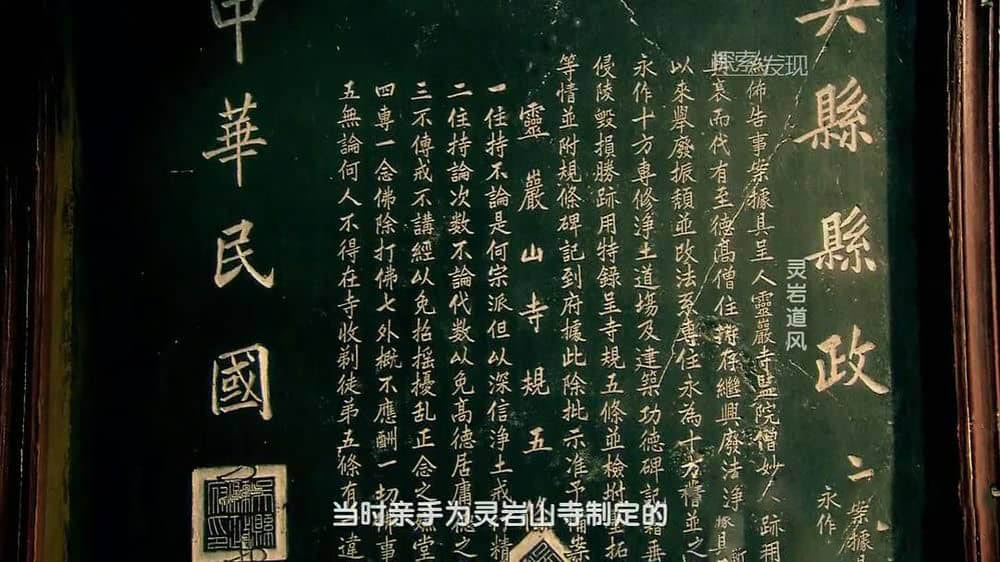 吳縣縣政
佛告事案據具呈人靈巖寺監院僧妙
衰而代有至德高僧住持存繼興廢法淨
以來舉廢振頹並改法系專住永為十方
永作十方專修淨土道場及建築功德碑記
侵陵毀損勝跡用特錄呈寺規五條並檢
等情並附規條碑記到府據此除批示准予
靈巖山寺規五條
一住持不論是何宗派但以深信淨土戒
二住持論次數不論代數以免高德居庸
三不傳戒不講經以免招搖擾乱正念之
四專一念佛除打佛七外概不應酬一切
五無論何人不得在寺收剃徒弟五條有
中華民國
探索发现
灵岩道风
当时亲手为灵岩山寺制定的